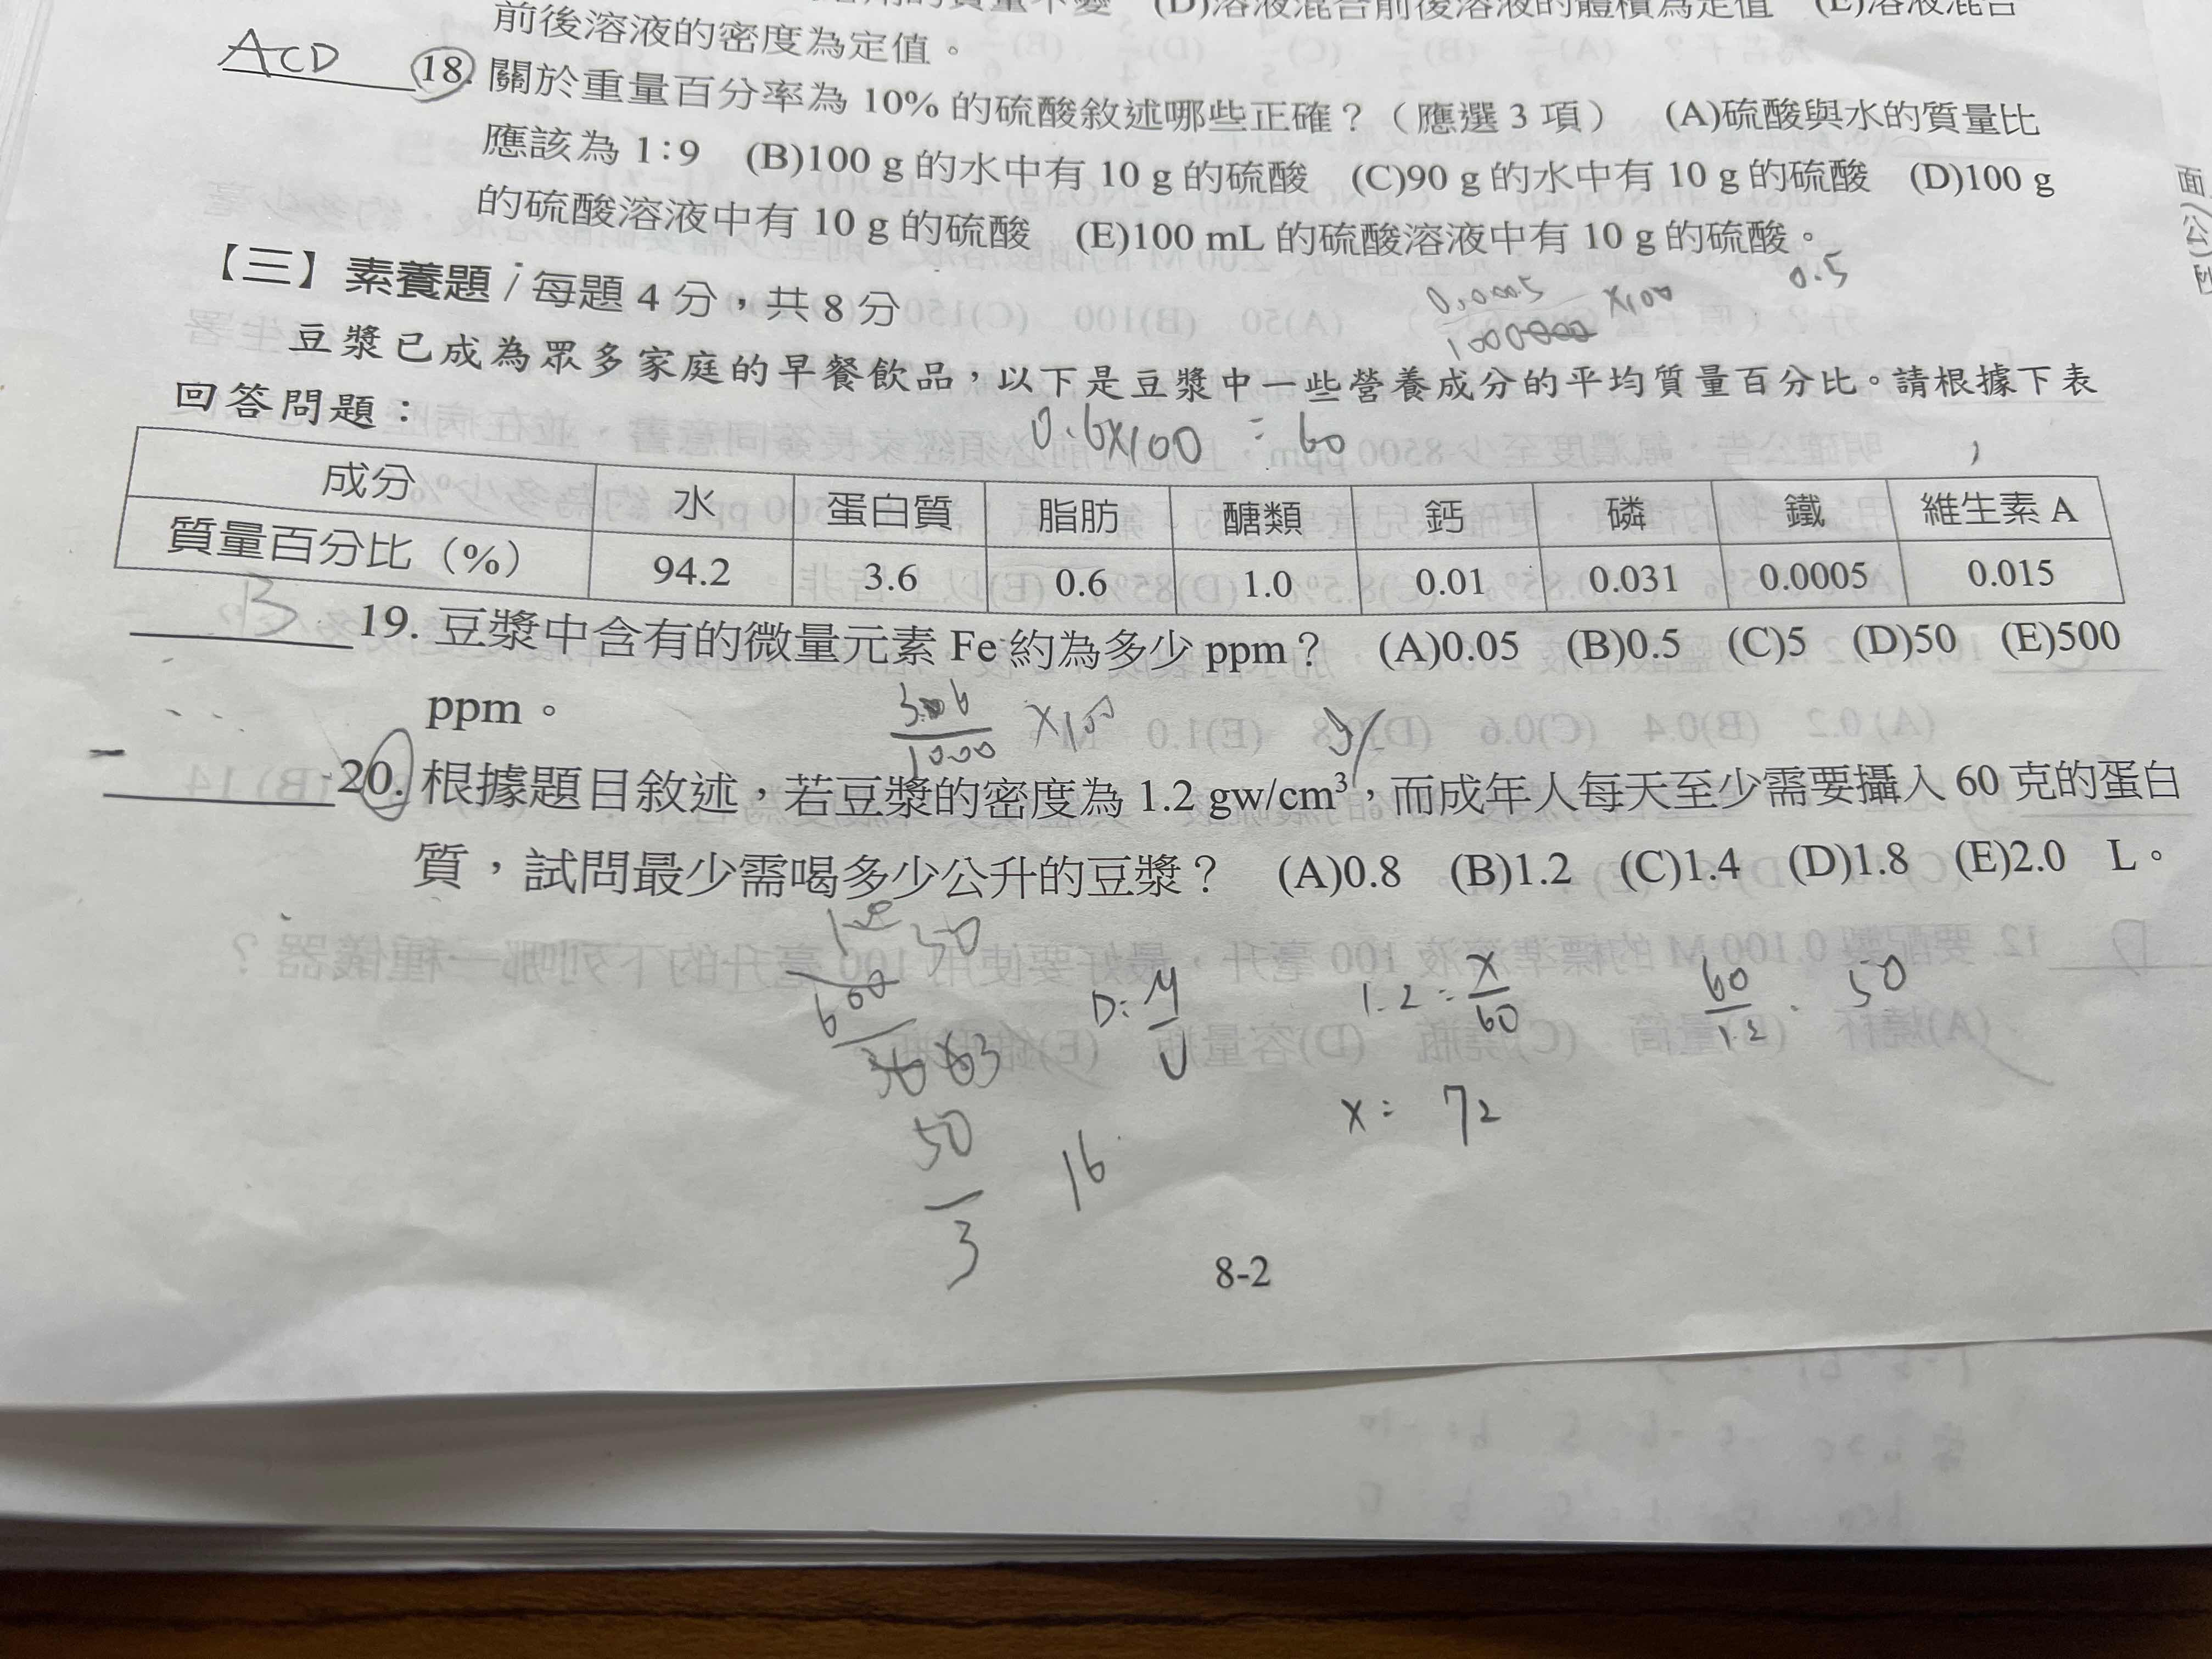 (D)溶液混合前後溶液的體積為定值 (E)溶液混合
前後溶液的密度為定值。
ACD 18. 關於重量百分率為 10% 的硫酸敘述哪些正確？（應選 3 項） (A)硫酸與水的質量比
應該為 1:9 (B)100 g 的水中有 10 g 的硫酸 (C)90 g 的水中有 10 g 的硫酸 (D)100 g
的硫酸溶液中有 10 g 的硫酸 (E)100 mL 的硫酸溶液中有 10 g 的硫酸。
0.5
【三】素養題 / 每題 4 分，共 8 分
0.0005 ×100
豆漿已成為眾多家庭的早餐飲品，以下是豆漿中一些營養成分的平均質量百分比。請根據下表
回答問題：
0.6×100 = 60
成分 水 蛋白質 脂肪 醣類 鈣 磷 鐵 維生素 A
質量百分比（%） 94.2 3.6 0.6 1.0 0.01 0.031 0.0005 0.015
B 19. 豆漿中含有的微量元素 Fe 約為多少 ppm？ (A)0.05 (B)0.5 (C)5 (D)50 (E)500
ppm。
20. 根據題目敘述，若豆漿的密度為 1.2 gw/cm³，而成年人每天至少需要攝入 60 克的蛋白
質，試問最少需喝多少公升的豆漿？ (A)0.8 (B)1.2 (C)1.4 (D)1.8 (E)2.0 L。
50
600
D: M
1.2 = x/60
60/1.2
50
x = 72
50
3
16
8-2